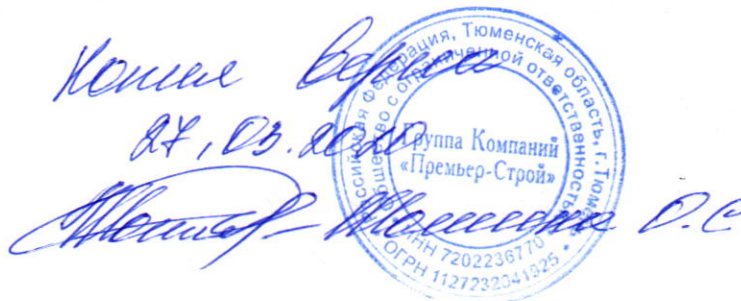 Копия верна
27.03.2020
Российская Федерация, Тюменская область, г. Тюмень
Общество с ограниченной ответственностью
Группа Компаний
«Премьер-Строй»
О.С
ИНН 7202236770
ОГРН 1127232041925